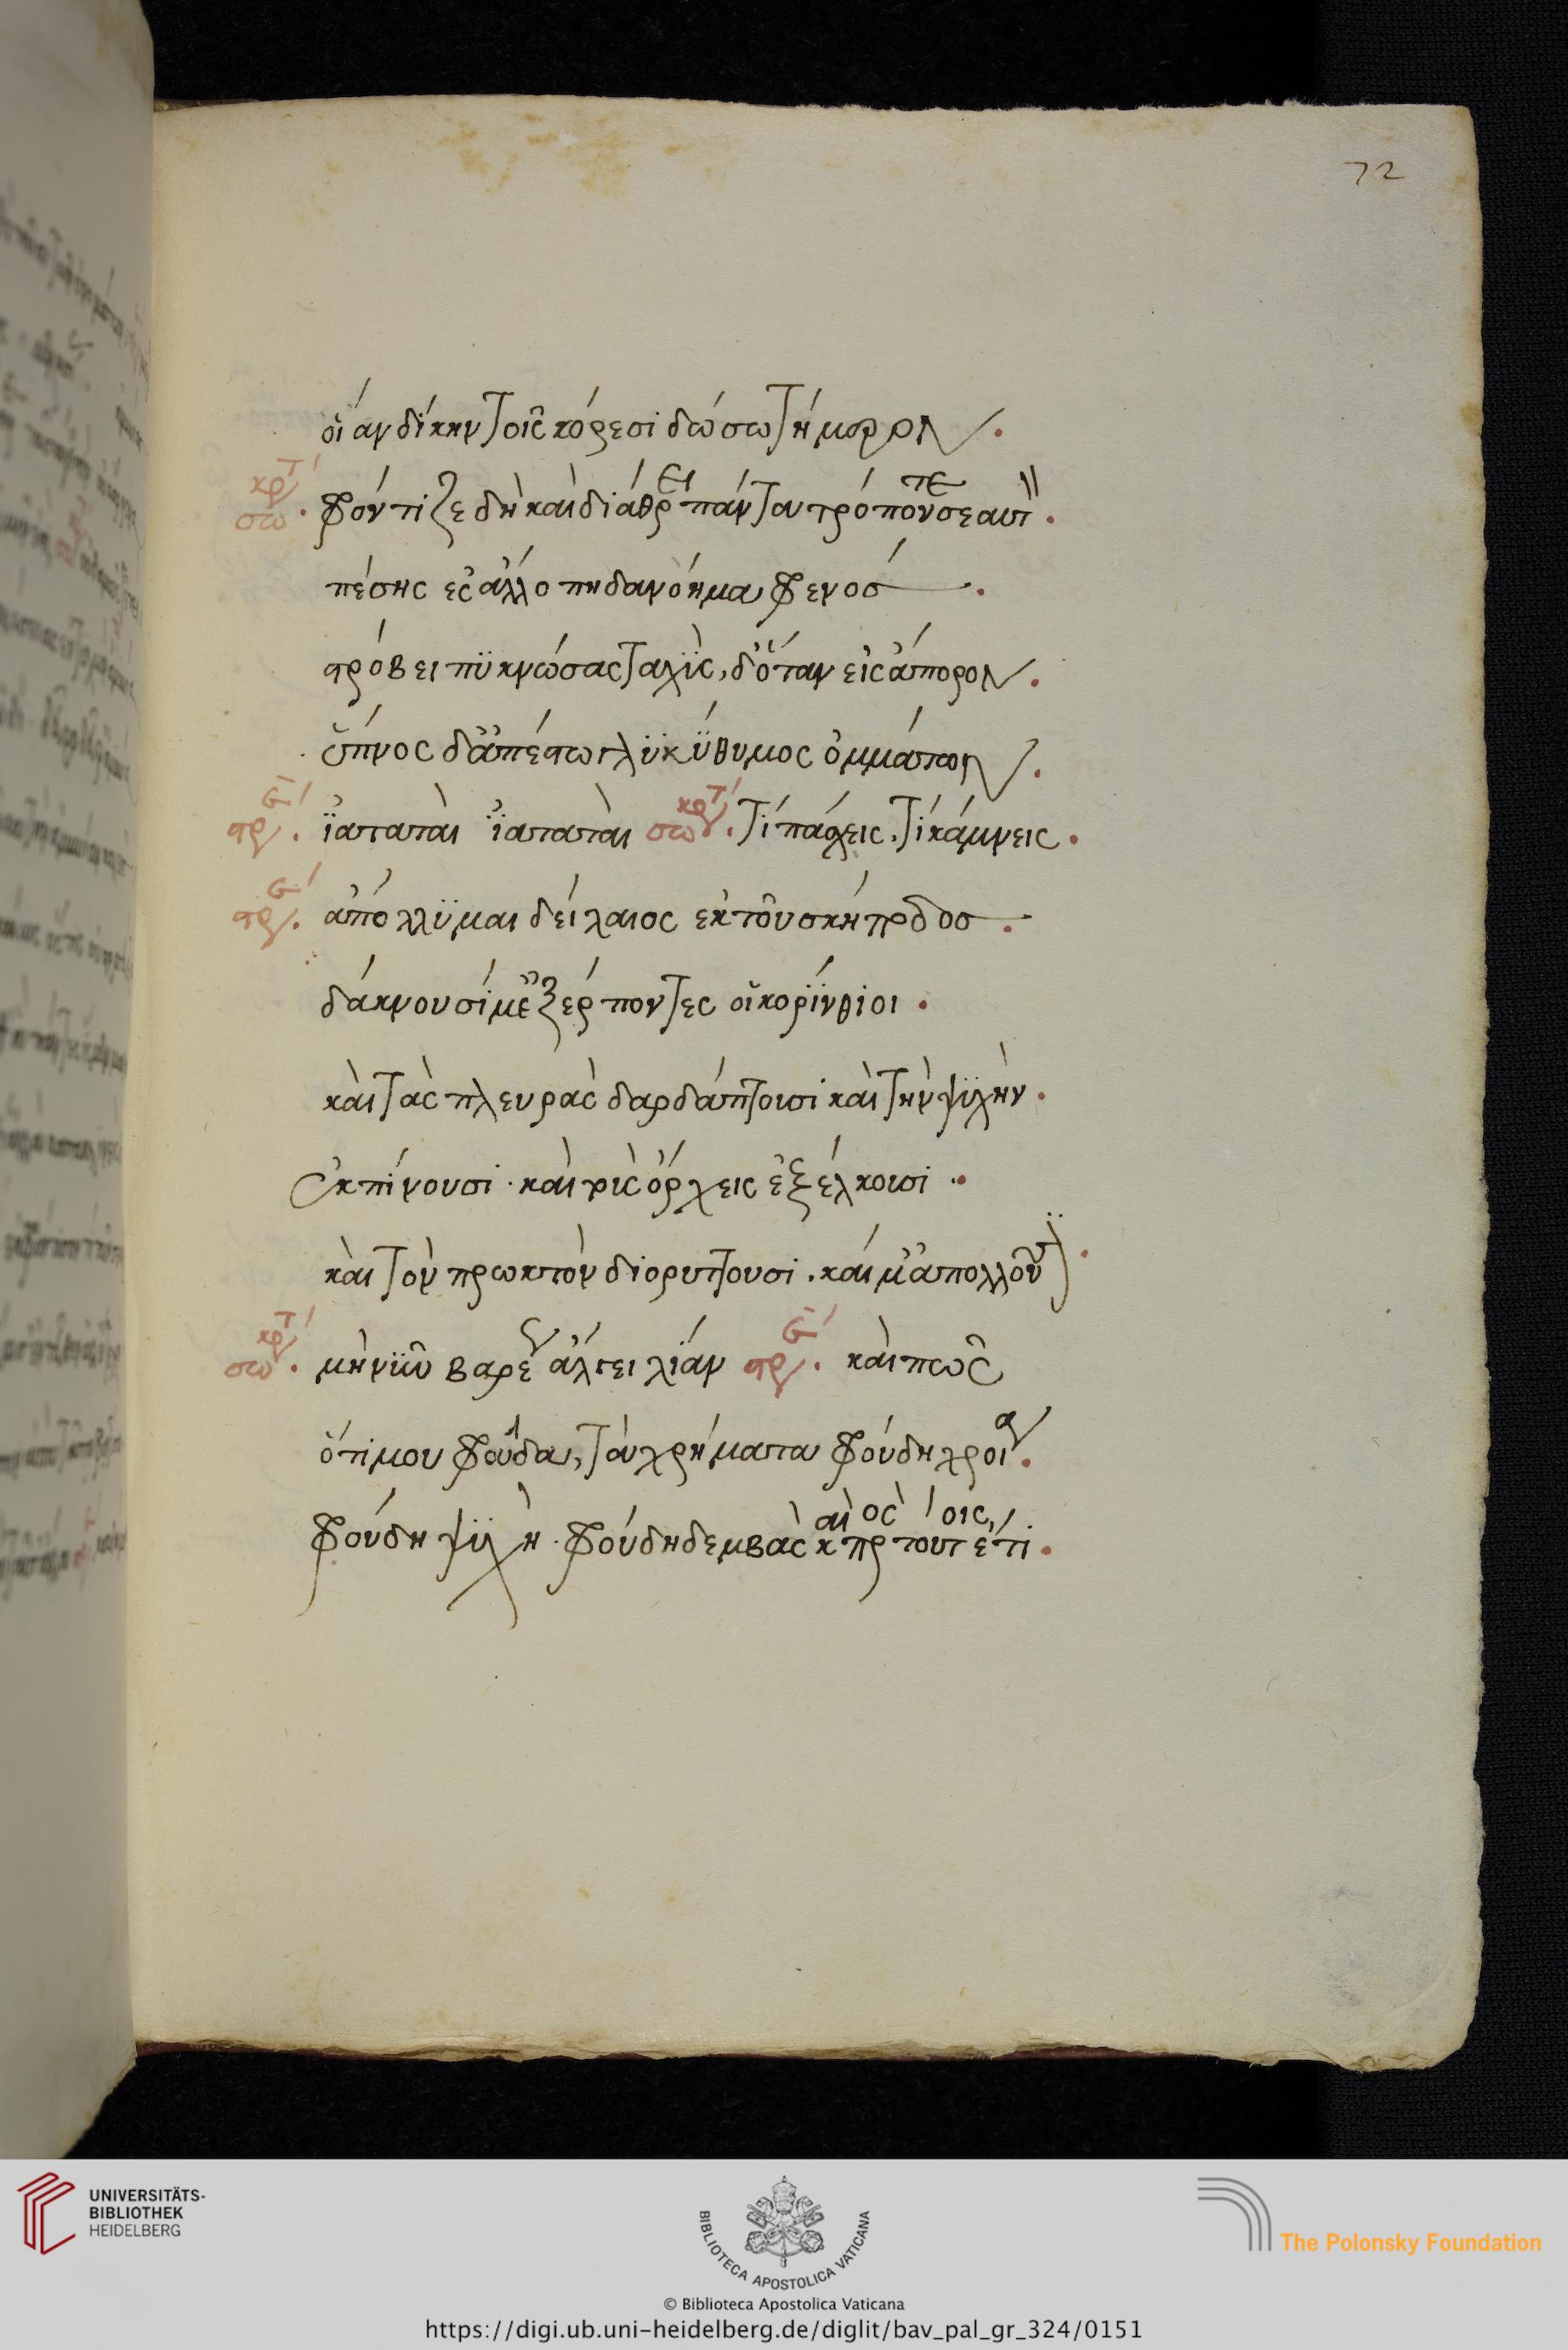 72
οἵαν δίκην τοῖς κόρεσι δώσω τήμερον.
σωκρτ. φρόντιζε δὴ καὶ διάθρει πάντα τρόπόν τε σεαυτ.
πέσης ἐς ἄλλο πηδα νόημα φρενοσ.
στρόβει πϋκνώσας ταχϋς, δ' ὅταν εἰς ἄπορον.
ὕπνος δ' ἀπέστω γλϋκύθυμος ὀμμάτων.
στρ. ἰατταται ἰατταται σωκρτ. τί πάσχεις, τί κάμνεις.
στρ. ἀπόλλϋμαι δείλαιος ἐκ τοῦ σκήποδοσ.
δάκνουσί μ' ἐξέρποντες οἱ κορίνθιοι.
καὶ τὰς πλευρὰς δαρδάπτουσι καὶ τὴν ψϋχήν.
ἐκπίνουσι. καὶ τοὺς ὄρχεις ἐξέλκουσι.
καὶ τὸν πρωκτὸν διορυττουσι. καί μ' ἀπολλοῦσϊ.
σωκρτ. μὴ νϋν βαρέως ἄλγει λίαν στρ. καὶ πῶς
ὅτι μου φροῦδα, τὰ χρήματα φρούδη χροιά.
φρούδη ψϋχὴ. φρούδη δ' ἐμβὰς καὶ πρὸς τούτοις, ἔτι.
UNIVERSITÄTS-
BIBLIOTHEK
HEIDELBERG
BIBLIOTECA APOSTOLICA VATICANA
The Polonsky Foundation
© Biblioteca Apostolica Vaticana
https://digi.ub.uni-heidelberg.de/diglit/bav_pal_gr_324/0151